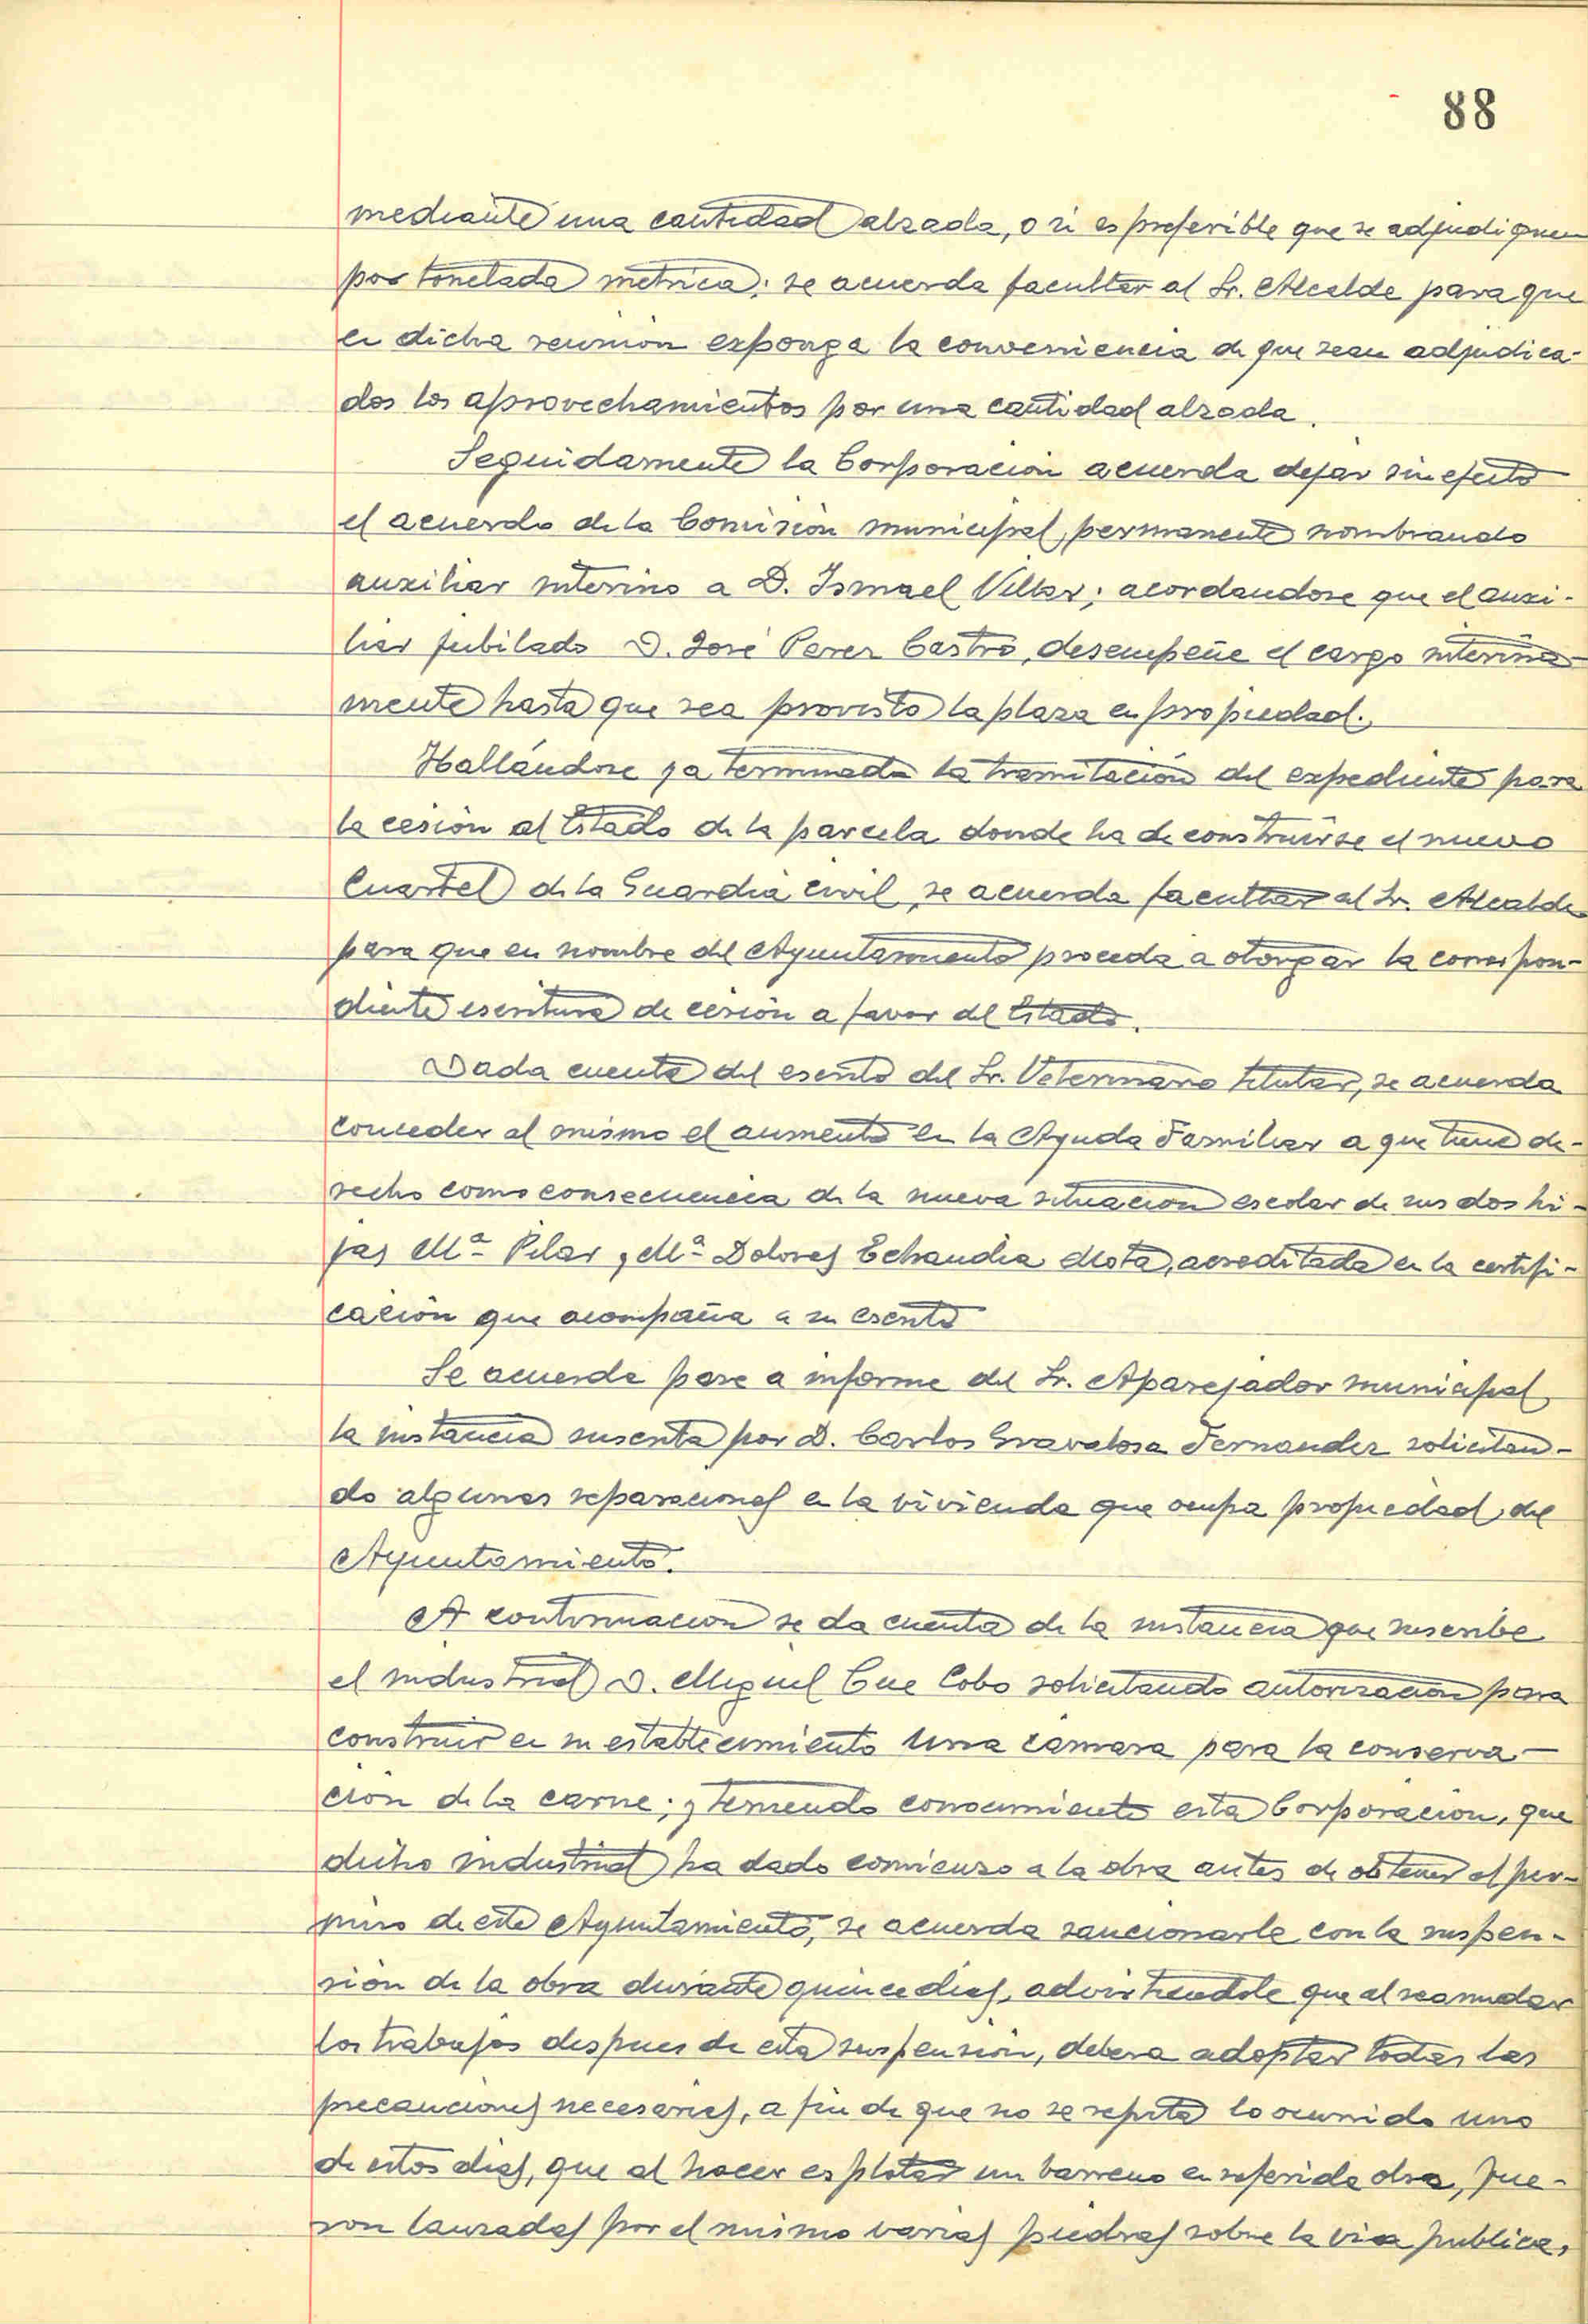 88
mediante una cantidad alzada, o si es preferible que se adjudiquen
por tonelada metrica; se acuerda facultar al Sr. Alcalde para que
en dicha reunion exponga la conveniencia de que sean adjudica-
dos los aprovechamientos por una cantidad alzada.
Seguidamente la Corporacion acuerda dejar sin efecto
el acuerdo de la Comisión municipal, permanente nombrando
auxiliar interino a D. Ismael Villar; acordandose que el auxi-
liar jubilado D. José Perez Castro, desempeñe el cargo interina-
mente hasta que sea provista la plaza en propiedad.
Hallándose ya terminada la tramitación del expediente para
la cesión al Estado de la parcela donde ha de construirse el nuevo
Cuartel de la Guardia civil, se acuerda facultar al Sr. Alcalde
para que en nombre del Ayuntamiento proceda a otorgar la correspon-
diente escritura de cesión a favor del Estado.
Dada cuenta del escrito del Sr. Veterinario titular, se acuerda
conceder al mismo el aumento en la Ayuda Familiar a que tiene de-
recho como consecuencia de la nueva situacion escolar de sus dos hi-
jas Mª Pilar y Mª Dolores Echandia Mota, acreditada en la certifi-
cación que acompaña a su escrito
Se acuerda pase a informe del Sr. Aparejador municipal
la instancia suscrita por D. Carlos Gravalosa Fernandez solicitan-
do algunas reparaciones en la vivienda que ocupa propiedad del
Ayuntamiento.
A continuacion se da cuenta de la instancia que suscribe
el industrial D. Miguel Cue Cobo solicitando autorizacion para
construir en su establecimiento una camara para la conserva-
cion de la carne; y teniendo conocimiento esta Corporacion, que
dicho industrial ha dado comienzo a la obra antes de obtener el per-
miso de este Ayuntamiento, se acuerda sancionarle con la suspen-
sión de la obra durante quince dias, advirtiendole que al reanudar
los trabajos despues de esta suspension, debera adoptar todas las
precauciones necesarias, a fin de que no se repita lo ocurrido uno
de estos dias, que al hacer esplotar un barreno en referida obra, fue-
ron lanzadas por el mismo varias piedras sobre la via publica,